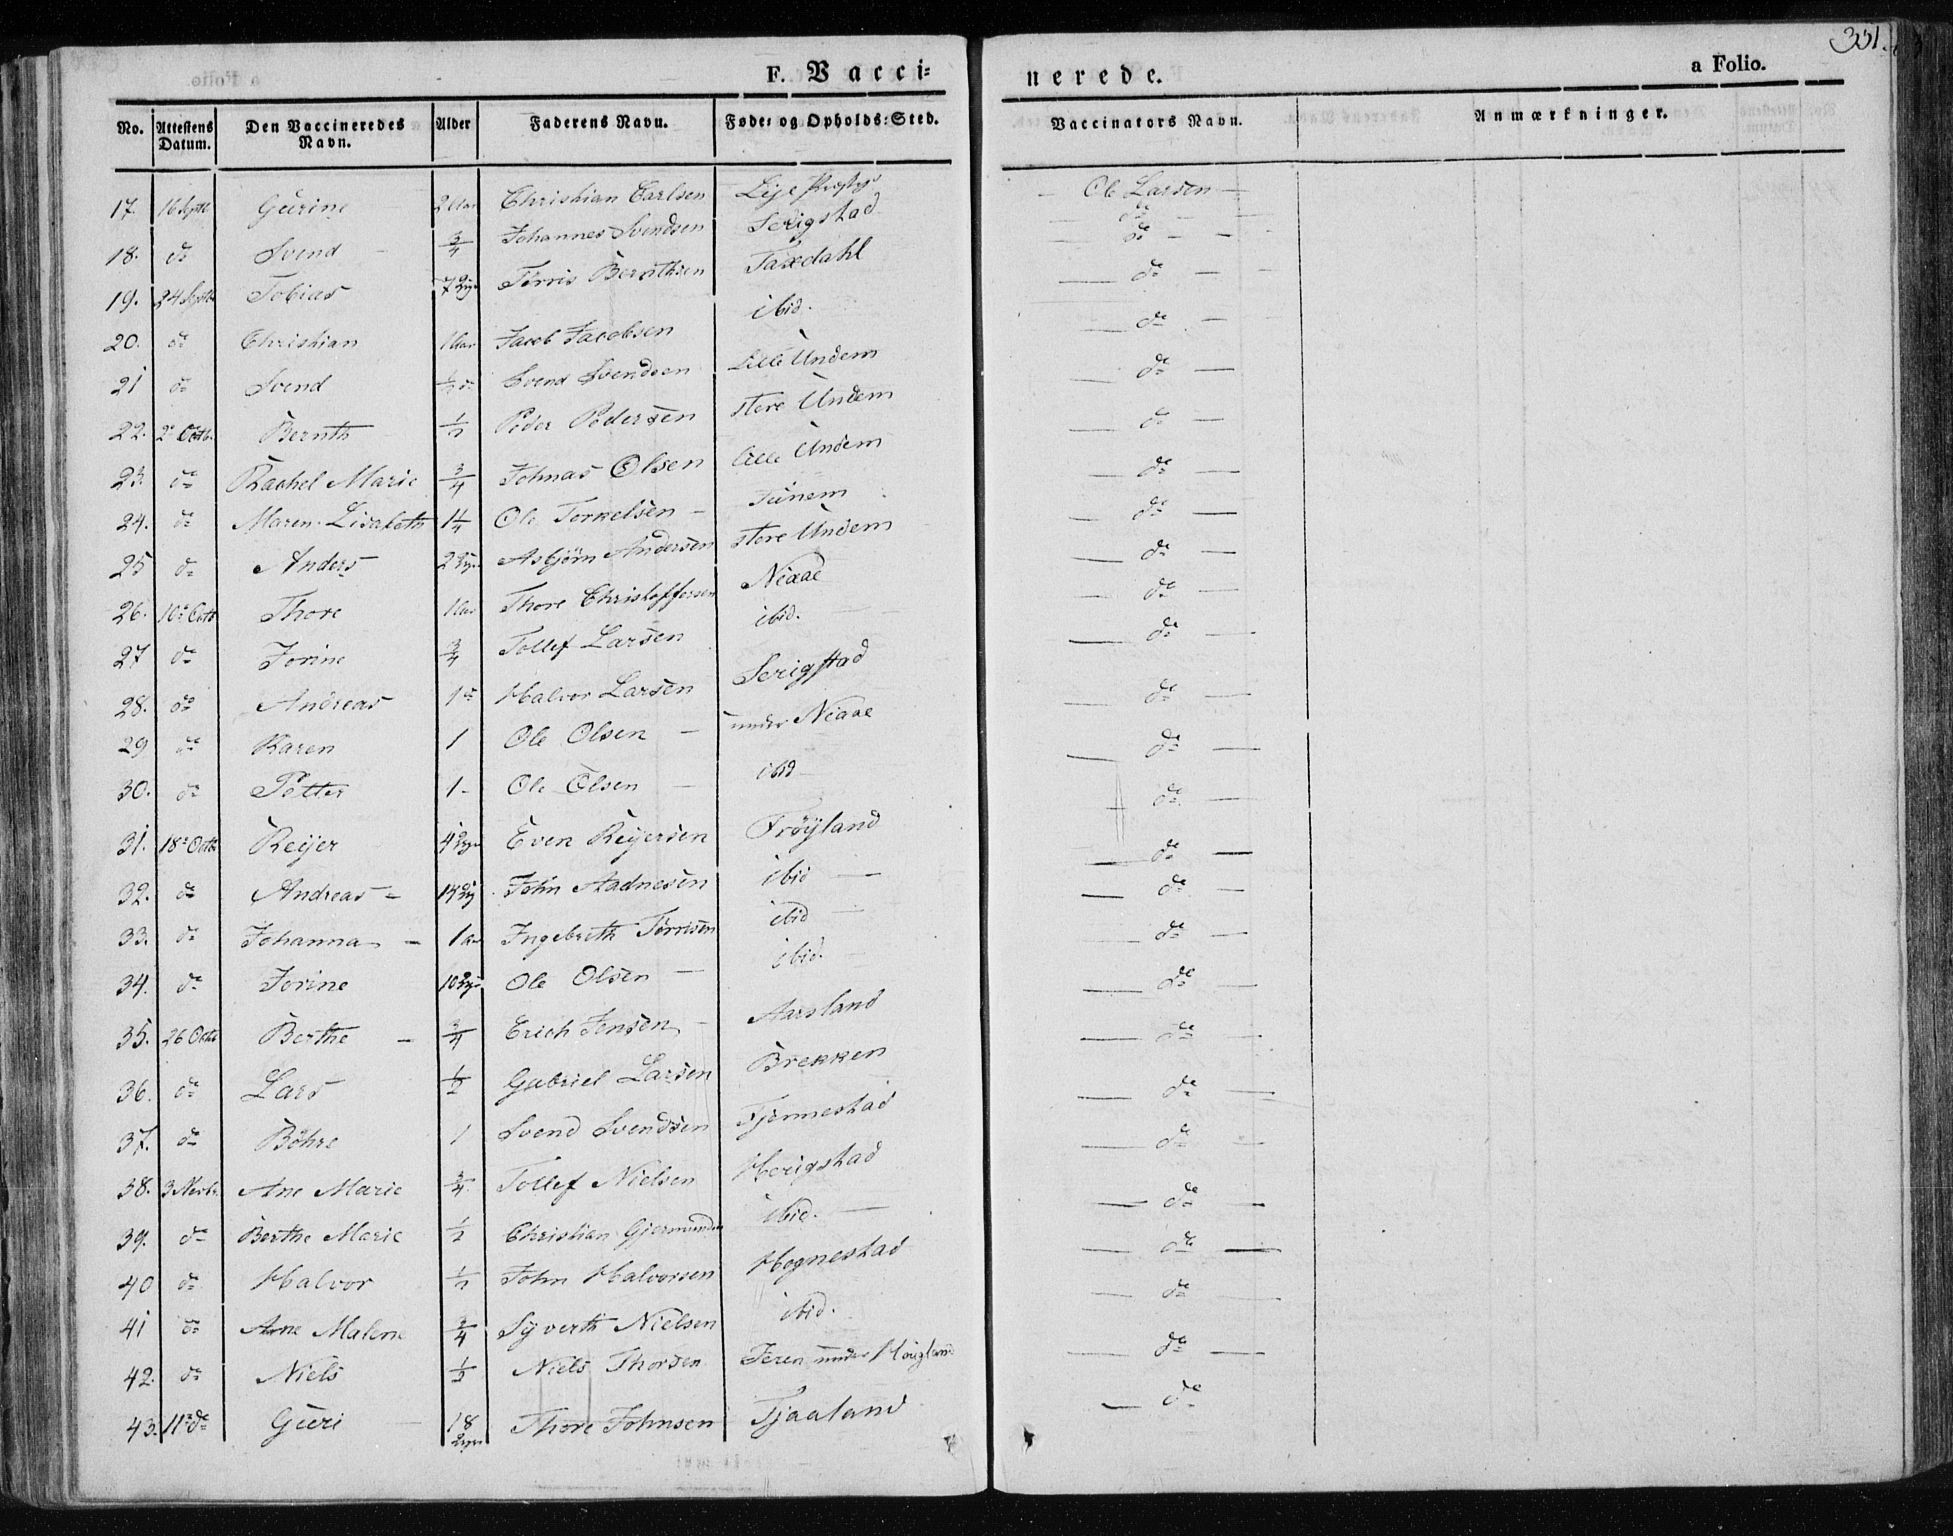 331.
F. Vacci=
nerede.
a Folio.
No. Attestens Datum. Den Vaccineredes Navn. Alder Faderens Navn. Føde= og Opholds=Sted. Vaccinators Navn. Anmærkninger.
17. 16 Septb Gurine 2 Aar Christian Carlsen Lye — Ole Larsen —
18. do Svend — 3/4 Johannes Svendsen Serigstad — do —
19. 24 Septb Tobias 7 Tørris Bernthsen Taxdahl — do —
20. do Christian 1 Aar Jacob Jacobsen ibid. — do —
21 do Svend 1/2 do Svend Svendsen Lille Undem — do —
22. 2 Octb. Bernth 1/2 Peder Pedersen store Undem — do —
23. do Rachel Marie 3/4 Johnas Olsen lille Undem — do —
24. do Maren Lisabeth 1 1/4 Ole Torkelsen — Tunem — do —
25 do Anders 2 Asbjørn Andersen store Undem — do —
26. 10 Octb Thore 1 Aar Thore Christoffersen Niaae — do —
27 do Jorine 3/4 Tollef Larsen ibid. — do —
28. do Andreas 1 do Halvor Larsen Serigstad — do —
29 do Karen 1 Ole Olsen — under Niaae — do —
30. do Petter 1 — Ole Olsen — ibid — do —
31. 18 Octb Reijer 4 Even Reijersen Frøyland — do —
32. do Andreas — 14 John Aadnesen ibid — do —
33. do Johanna — 1 Aar Ingebreth Tørrisen ibid — do —
34. do Jorine 10 Ole Olsen — ibid. — do —
35. 26 Octb Berthe — 3/4 Erich Jensen — Aarsland — do —
36. do Lars 1/2 Gabriel Larsen Brekken — do —
37. do Böhre 1 Svend Svendsen Tjemestad — do —
38. 3 Novbr. Ane Marie 3/4 Tollef Nielsen Herigstad — do —
39. do Berthe Marie 1/2 Christian Gjermunds ibid. — do —
40 do Halvor 1/2 John Halvorsen Hognestad — do —
41 do Anne Malene 3/4 Syverth Nielsen ibid. — do —
42. do Niels 1/2 Niels Thorsen Jeren under Høigland — do —
43. 11 do Guri — 18 Thore Johnsen Tjaaland — do